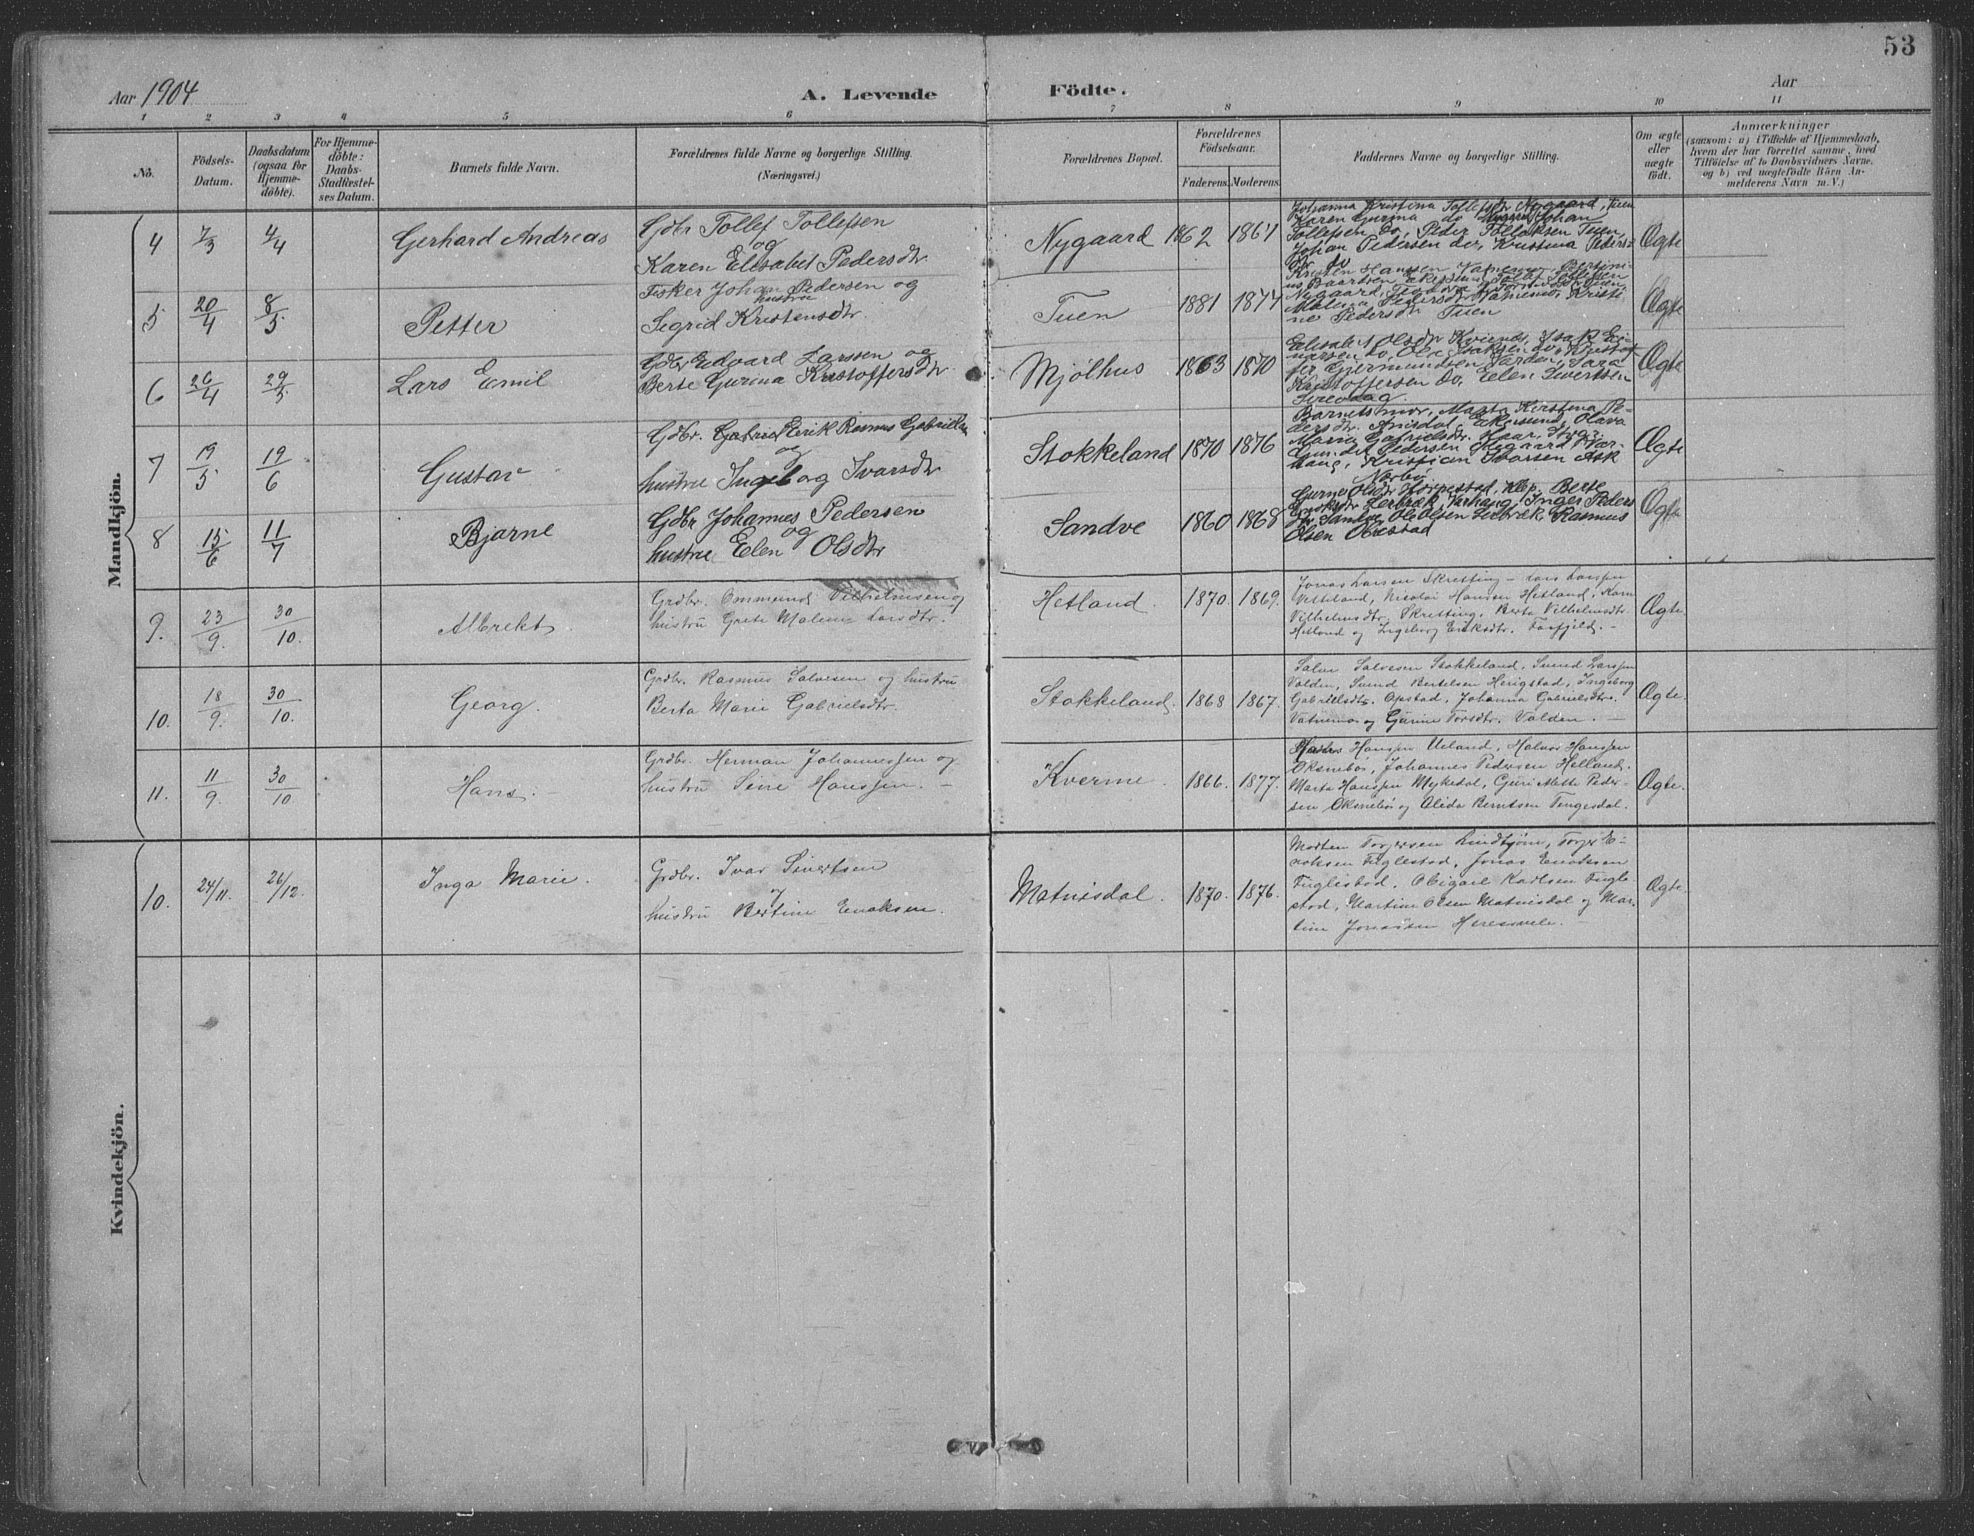 53
Aar 1904
A. Levende Födte.
Aar
1 2 3 4 5 6 7 8 9 10 11
No.
Födsels-
Datum.
Daabsdatum
(ogsaa for
Hjemme-
döbte).
For Hjemme-
döbte:
Daabs-
Stadfæstel-
ses Datum.
Barnets fulde Navn.
Forældrenes fulde Navne og borgerlige Stilling.
(Næringsvei.)
Forældrenes Bopæl.
Forældrenes
Födselsaar.
Faderens. Moderens.
Faddernes Navne og borgerlige Stilling.
Om ægte
eller
uægte
födt.
Anmærkninger
(saasom: a) i Tilfælde af Hjemmedaab,
hvem der har forrettet samme, med
Tilföielse af to Daabsvidners Navne,
og b) ved uægtefödte Börn An-
melderens Navn m. V.)
Mandkjön.
4 7/3 4/4 Gerhard Andreas
Gdbr Tollef Tollefsen
og
Karen Elisabet Pedersdtr
Nygaard 1862 1861
Johanna Kristina Tollefsdtr Nygaard, Tuen
Karen Gurina do Johan
Tollefsen do, Peder Tollaksen Tuen,
Johan Pedersen do, Kristina Peders-
dtr do
Ægte
5 20/4 8/5 Petter
Fisker Johan Pedersen og
hustru
Segrid Kristensdtr
Tuen 1881 1877
Kristen Hansen Vatnemo, Bertini-
us Baardsen Ekersund, Tollef Tollefsen
Nygaard,
Malena Pedersdtr Vatnemo, Kristi-
ne Pedersdtr Tuen
Ægte
6 26/4 29/5 Lars Eemil
Gdbr Edvard Larssen og
Berte Gurina Kristoffersdtr
Mjølhus 1863 1870
Elisabet Olsdtr Kvien, Isak Ei-
narsen do, Ola Isaksen do, Kristof-
fer Gjermundsen Varden, Sara
Kristoffersen do, Elen Sivertsen
Sirevaag.
Ægte
7 19/5 19/6 Gustav
Gdbr. Gabriel Erik Rasmus Gabrielsen
og
hustru Ingeborg Ivarsdtr
Stokkeland 1870 1876
Barnets mor, Marta Kirstina Pe-
dersdtr. Anisdal, Ekersund, Olava
Maria Gabrielsdtr. Haar,
Pedersen Ilegaard Var-
haug, Kristian Ivarsen Ask
Nærbø
Ægte
8 15/6 11/7 Bjarne
Gdbr Johannes Pedersen
og
hustru Elen Olsdtr
Sandve 1860 1868
Gurine Olsdtr Horpestad, Klep, Berte
Lerbræk Varhaug, Inger Peders
dtr Sandve Ole Olsen Lerbræk, Rasmus
Olsen Obrestad
Ægte
9. 23/9. 30/10. Albrekt.
Grdbr. Ommund Vilhelmsen og
hustru Grete Malene Larsdtr.
Hetland. 1870. 1869.
Jonas Larsen Skretting – Lars Larsen
Vetteland, Nicolai Hansen Hetland, Karn
Vilhelmsdtr. Skretting, Berta Vilhelmsdtr.
Hetland og Ingeborg Eriksdtr. Fosfjeld. –
Ægte
10. 18/9. 30/10. Georg.
Grdbr. Rasmus Salvesen og hustru
Berta Marie Gabrielsdtr.
Stokkeland. 1868 1867.
Salve Salvesen Stokkeland, Svend Larsen
Valden, Svend Bertelsen Herigstad, Ingeborg
Gabrielsdtr. Opstad, Johanna Gabrielsdtr.
Vatnemo og Gurine Torsdtr. Valden. –
Ægte.
11. 11/9. 30/10. Hans. –
Grdbr. Herman Johannessen og
hustru Sine Hanssen. –
Kverme. 1866. 1877.
Hanssen Ueland, Halvor Hanssen
Øksnebø, Johannes Pedersen Helland.
Marta Hanssen Mykedal, Guri Mette Peder-
sen Øksnebø og Alida Berntsen Tengesdal.
Ægte.
Kvindekjön.
10. 24/11. 26/12. Inga Marie.
Grdbr. Ivar Sivertsen
og
hustru Bertine Enoksen.
Matnisdal. 1870. 1876.
Morten Torgersen Lindtjørn, Torger E-
noksen Fuglestad, Jonas Enoksen
Fuglestad, Abigael Karlsen Fugle-
stad, Martine Olsen Matnisdal og Mar-
tine Jonassen Heresvele.
Ægte.